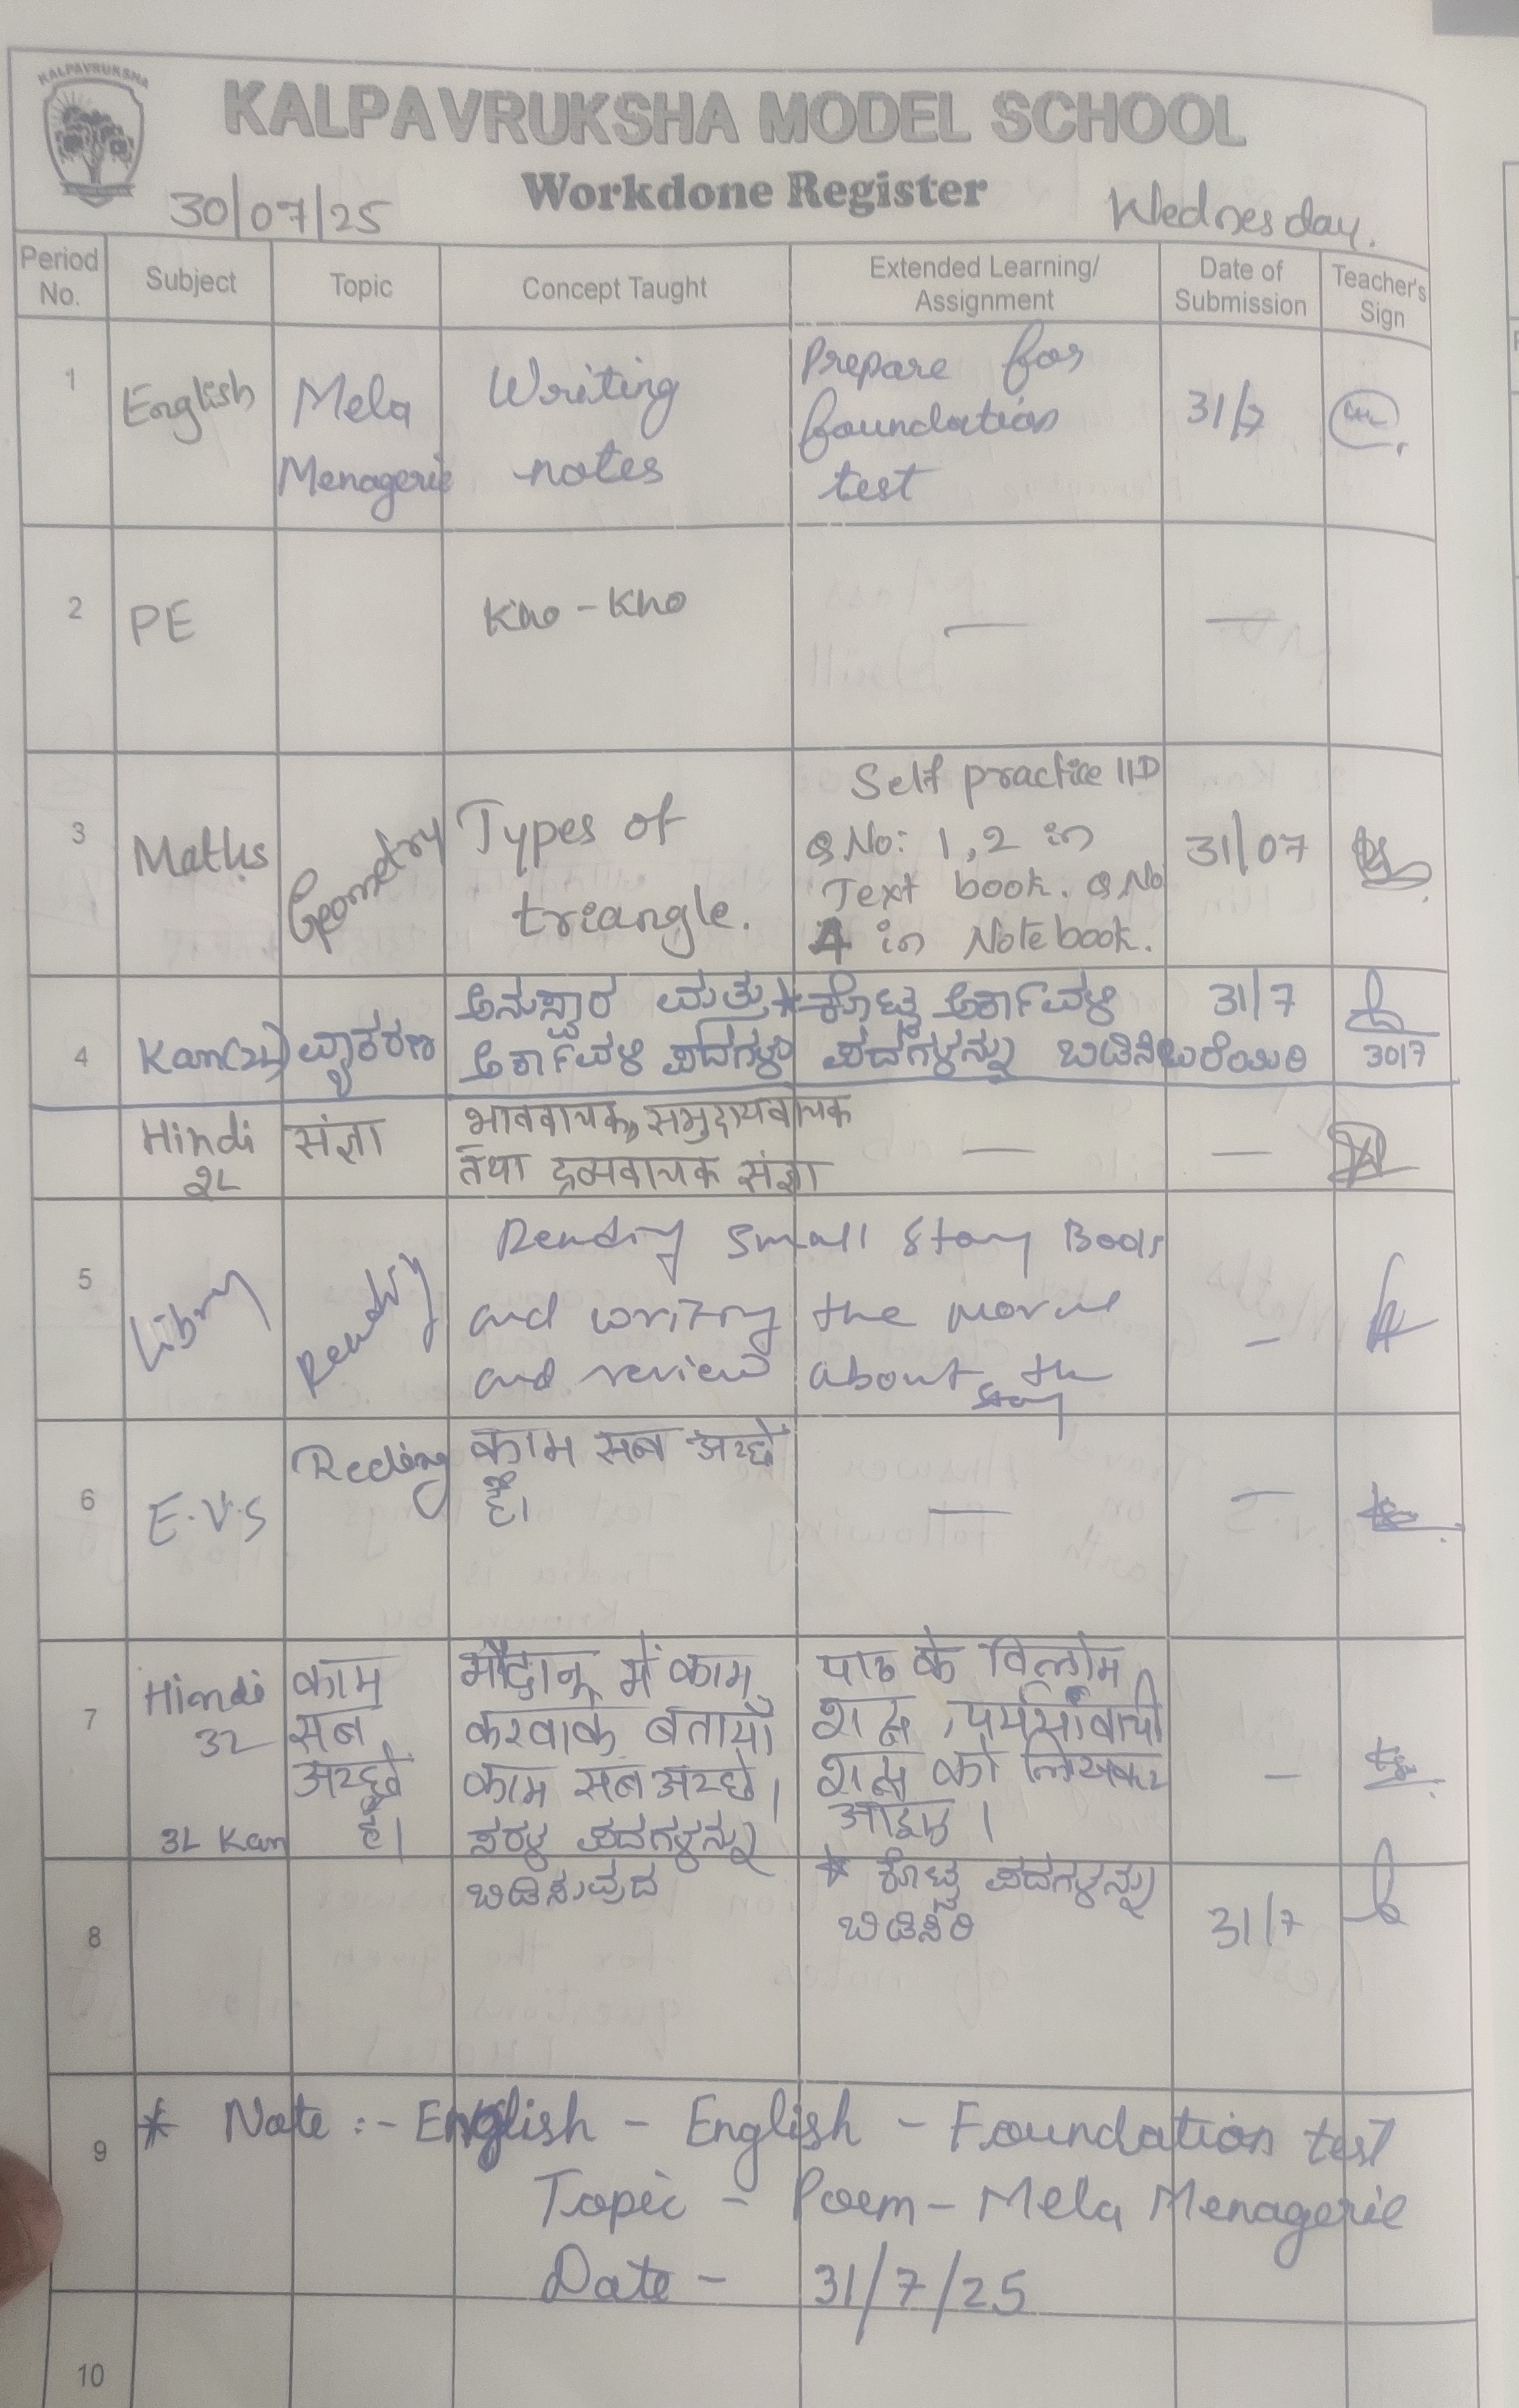 KALPAVRUKSHA
KALPAVRUKSHA MODEL SCHOOL
Workdone Register
30/07/25
Wednesday.
Period No.
Subject
Topic
Concept Taught
Extended Learning/
Assignment
Date of
Submission
Teacher's
Sign
1
English
Mela
Menagerie
Writing
notes
Prepare for
foundation
test
31/7
2
PE
Kho-Kho
—
—
3
Maths
Geometry
Types of
triangle.
Self practice 11D
Q No: 1,2 in
Text book. Q No
4 in Notebook.
31/07
4
Kan(2L)
ವ್ಯಾಕರಣ
ಅನುಸ್ವಾರ ಮತ್ತು
ಅರ್ಕಾವಳಿ ಪದಗಳು
* ಕೊಟ್ಟ ಅರ್ಕಾವಳಿ
ಪದಗಳನ್ನು ಬಿಡಿಸಿ ಬರೆಯಿರಿ
31/7
30/7
Hindi
2L
संज्ञा
भाववाचक, समुदायवाचक
तथा द्रव्यवाचक संज्ञा
—
—
5
Library
Reading
Reading small story Books
and writing the moral
and review about the
story
-
6
E.V.S
Reding
काम सब अच्छे
है।
—
—
7
Hindi
3L
काम
सब
अच्छे
है।
में काम
करवाके बताया
काम सब अच्छे।
पाठ के विलोम
शब्द,
शब्द को लिखकर
आइए।
-
3L Kan
ಸರಳ ಪದಗಳನ್ನು
ಬಿಡಿಸುವುದ
8
* ಕೊಟ್ಟ ಪದಗಳನ್ನು
ಬಿಡಿಸಿರಿ
31/7
9
* Note :- English - English - Foundation test
Topic - Poem - Mela Menagerie
Date - 31/7/25
10